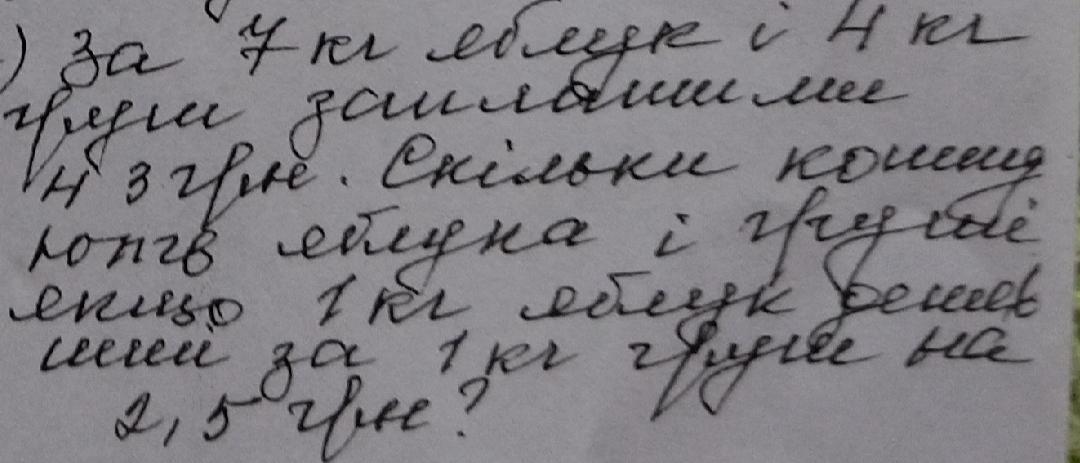 ) За 7 кг яблук і 4 кг
груш заплатили
43 грн. Скільки кошту
ють яблука і груші
якщо 1 кг яблук дешев
ший за 1 кг груш на
2,5 грн?